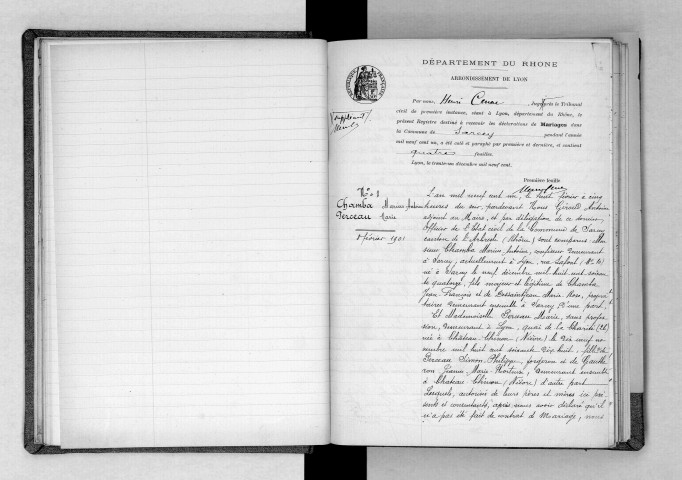 DÉPARTEMENT DU RHONE
ARRONDISSEMENT DE LYON
RÉPUBLIQUE FRANÇAISE
Par nous, Henri Cenac, près le Tribunal
civil de première instance, séant à Lyon, département du Rhône, le
présent Registre destiné à recevoir les déclarations de Mariages dans
la Commune de Sarcey pendant l'année
mil neuf cent un, a été coté et paraphé par première et dernière, et contient
quatre feuilles.
Lyon, le trente-un décembre mil neuf cent.
Première feuille
N° 1
Chamba Marius Antoine
Perceau Marie
8 février 1901
L'an mil neuf cent un, le huit février à cinq
heures du soir, pardevant Nous Gérald Antoine
adjoint au Maire, et par délégation de ce dernier
Officier de l'Etat civil de la Commune de Sarcey
canton de L'Arbresle (Rhône) sont comparus Mon
sieur Chamba Marius Antoine, demeurant
à Sarcey, actuellement à Lyon, rue Lafont,
né à Sarcey le neuf décembre mil huit cent soixan
te quatorze, fils majeur et légitime de Chamba
Jean François et de Dessaintjean Marie Rose, proprié
taires demeurant ensemble à Sarcey d'une part
Et Mademoiselle Perceau Marie, sans profes
sion, demeurant à Lyon, quai de la Charité
née à Château-Chinon (Nièvre) le dix neuf no
vembre mil huit cent soixante dix huit, fille de
Perceau Simon Philippe, forgeron et de Gauthe
ron Jeanne Marie, demeurant ensemble
à Château-Chinon (Nièvre) d'autre part
Lesquels, autorisés de leurs pères et mères ici pré
sents et consentants, après nous avoir déclaré qu'il
n'a pas été fait de contrat de Mariage, nous